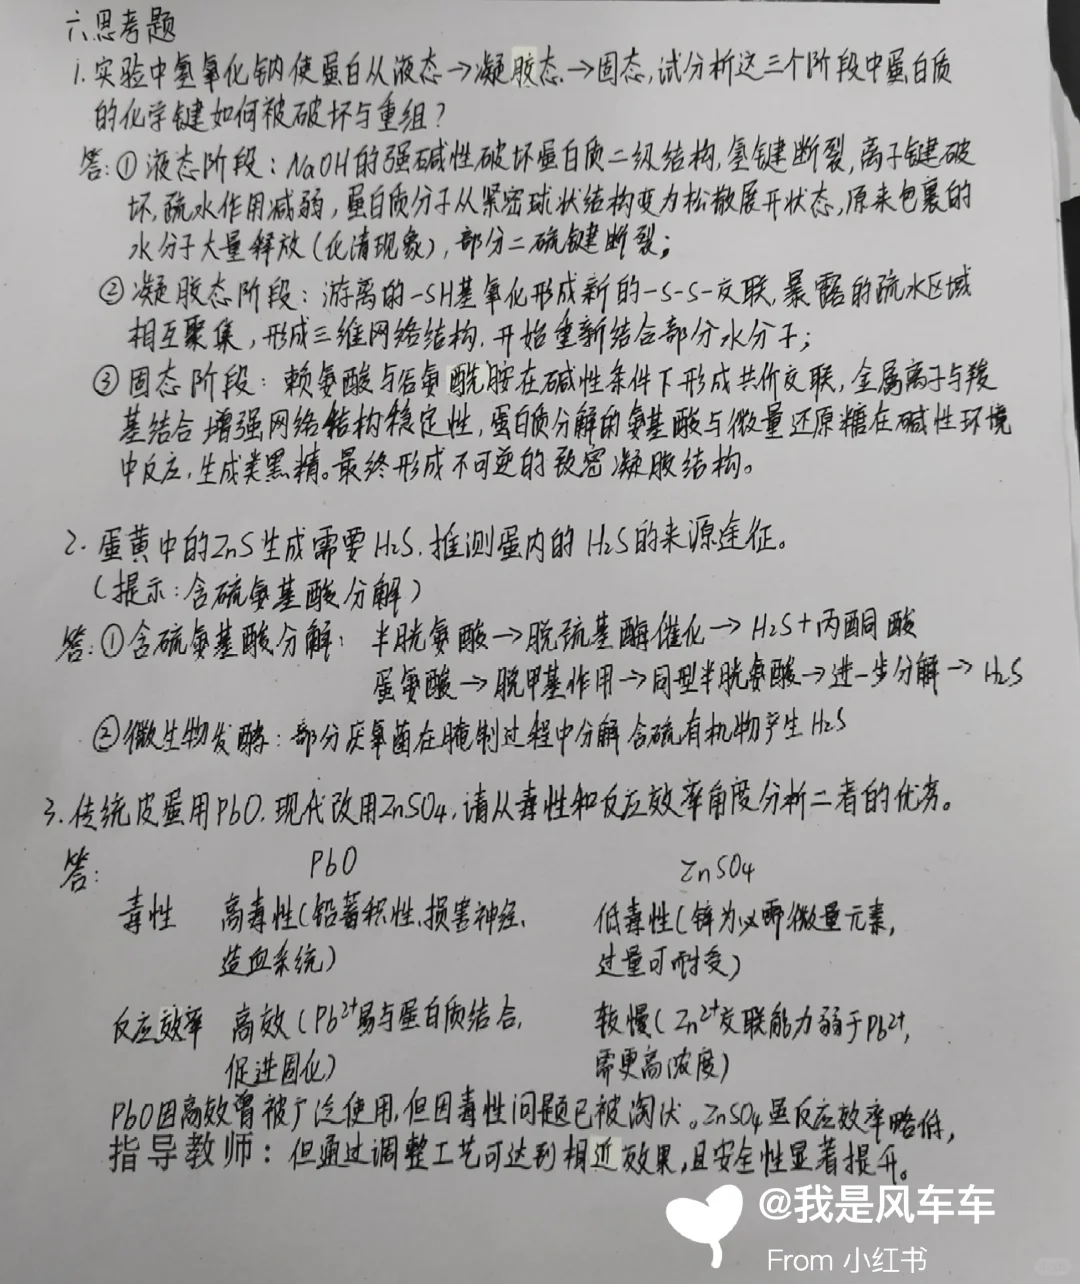 六思考题
1. 实验中氢氧化钠使蛋白从液态→凝胶态→固态,试分析这三个阶段中蛋白质
的化学键如何被破坏与重组?
答:①液态阶段:NaOH的强碱性破坏蛋白质二级结构,氢键断裂,离子键破
坏,疏水作用减弱,蛋白质分子从紧密球状结构变为松散展开状态,原来包裹的
水分子大量释放(化清现象),部分二硫键断裂;
②凝胶态阶段:游离的-SH基氧化形成新的-S-S-交联,暴露的疏水区域
相互聚集,形成三维网络结构.开始重新结合部分水分子;
③固态阶段:赖氨酸与谷氨酰胺在碱性条件下形成共价交联,金属离子与羧
基结合增强网络结构稳定性,蛋白质分解的氨基酸与微量还原糖在碱性环境
中反应,生成类黑精。最终形成不可逆的致密凝胶结构。
2. 蛋黄中的ZnS生成需要H₂S.推测蛋内的H₂S的来源途征。
(提示:含硫氨基酸分解)
答:①含硫氨基酸分解:半胱氨酸→脱巯基酶催化→H₂S+丙酮酸
蛋氨酸→脱甲基作用→同型半胱氨酸→进一步分解→H₂S
②微生物发酵:部分厌氧菌在腌制过程中分解含硫有机物产生H₂S
3. 传统皮蛋用PbO.现代改用ZnSO₄,请从毒性和反应效率角度分析二者的优劣。
答: PbO ZnSO₄
毒性 高毒性(铅蓄积性,损害神经, 低毒性(锌为必需微量元素,
造血系统) 过量可耐受)
反应效率 高效(Pb²⁺易与蛋白质结合, 较慢(Zn²⁺交联能力弱于Pb²⁺,
促进固化) 需更高浓度)
PbO因高效曾被广泛使用,但因毒性问题已被淘汰。ZnSO₄虽反应效率略低,
指导教师:但通过调整工艺可达到相近效果,且安全性显著提升。
@我是风车车
From 小红书